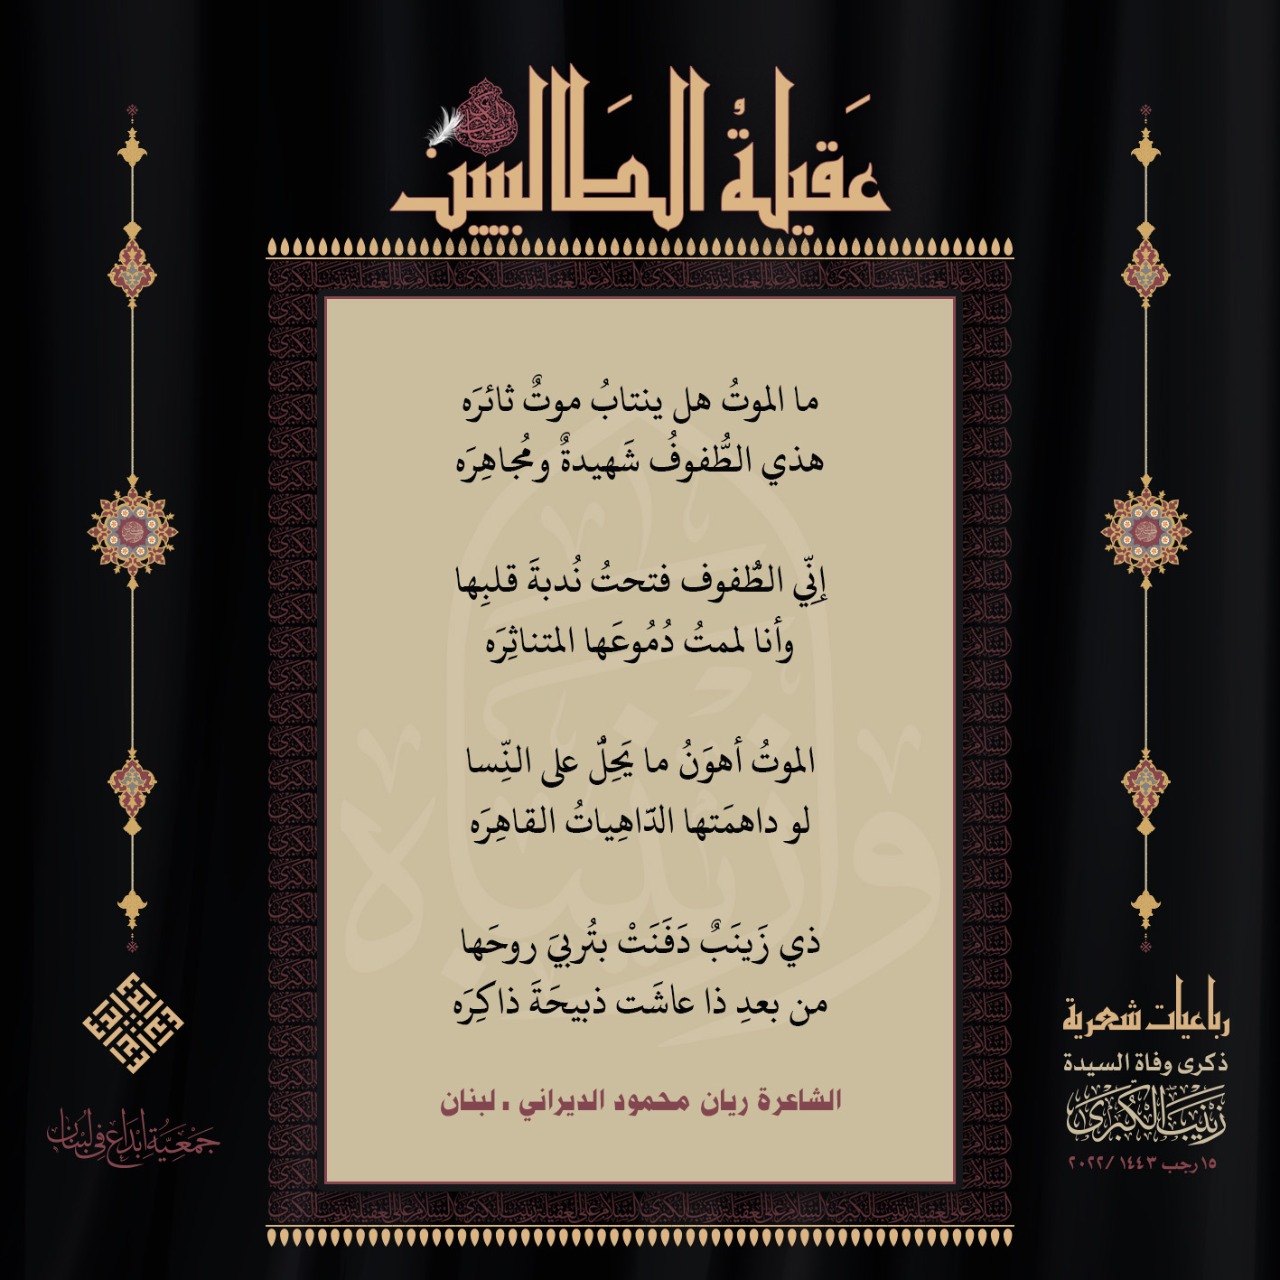 عَقيلةُ الطَالبيين
ما الموتُ هل ينتابُ موتٌ ثائرَه
هذي الطُّفوفُ شَهيدةٌ ومُجاهِرَه
إنّي الطُّفوف فتحتُ نُدبةَ قلبِها
وأنا لممتُ دُمُوعَها المتناثِرَه
الموتُ أهوَنُ ما يَحِلٌ على النِّسا
لو داهمَتها الدّاهِياتُ القاهِرَه
ذي زَينَبٌ دَفَنَتْ بتُربيَ روحَها
من بعدِ ذا عاشَت ذبيحَةَ ذاكِرَه
الشاعرة ريان محمود الديراني . لبنان
رباعيات شعرية
ذكرى وفاة السيدة
زَيْنَبَ الْكُبرَى
١٥ رجب ١٤٤٣ /٢٠٢٢
جَمْعِيَّةُ إبْدَاع فِي لُبْنَان